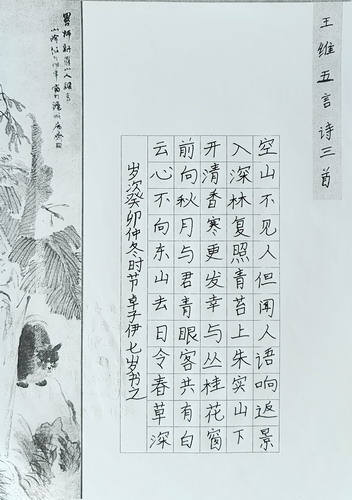 王维五言诗三首
空山不见人但闻人语响返景
入深林复照青苔上朱实山下
开清香寒更发幸与丛桂花窗
前向秋月与君青眼客共有白
云心不向东山去日令春草深
岁次癸卯仲冬时节卓子伊七岁书之